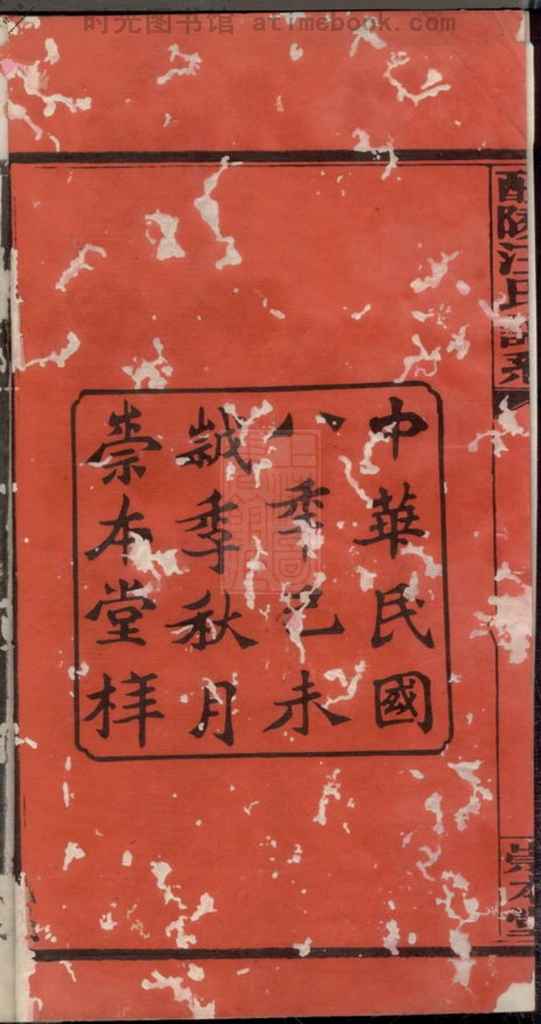 时光图书馆 atimebook.com
中華民國
八秊己未
歲季秋月
崇本堂梓
崇本堂